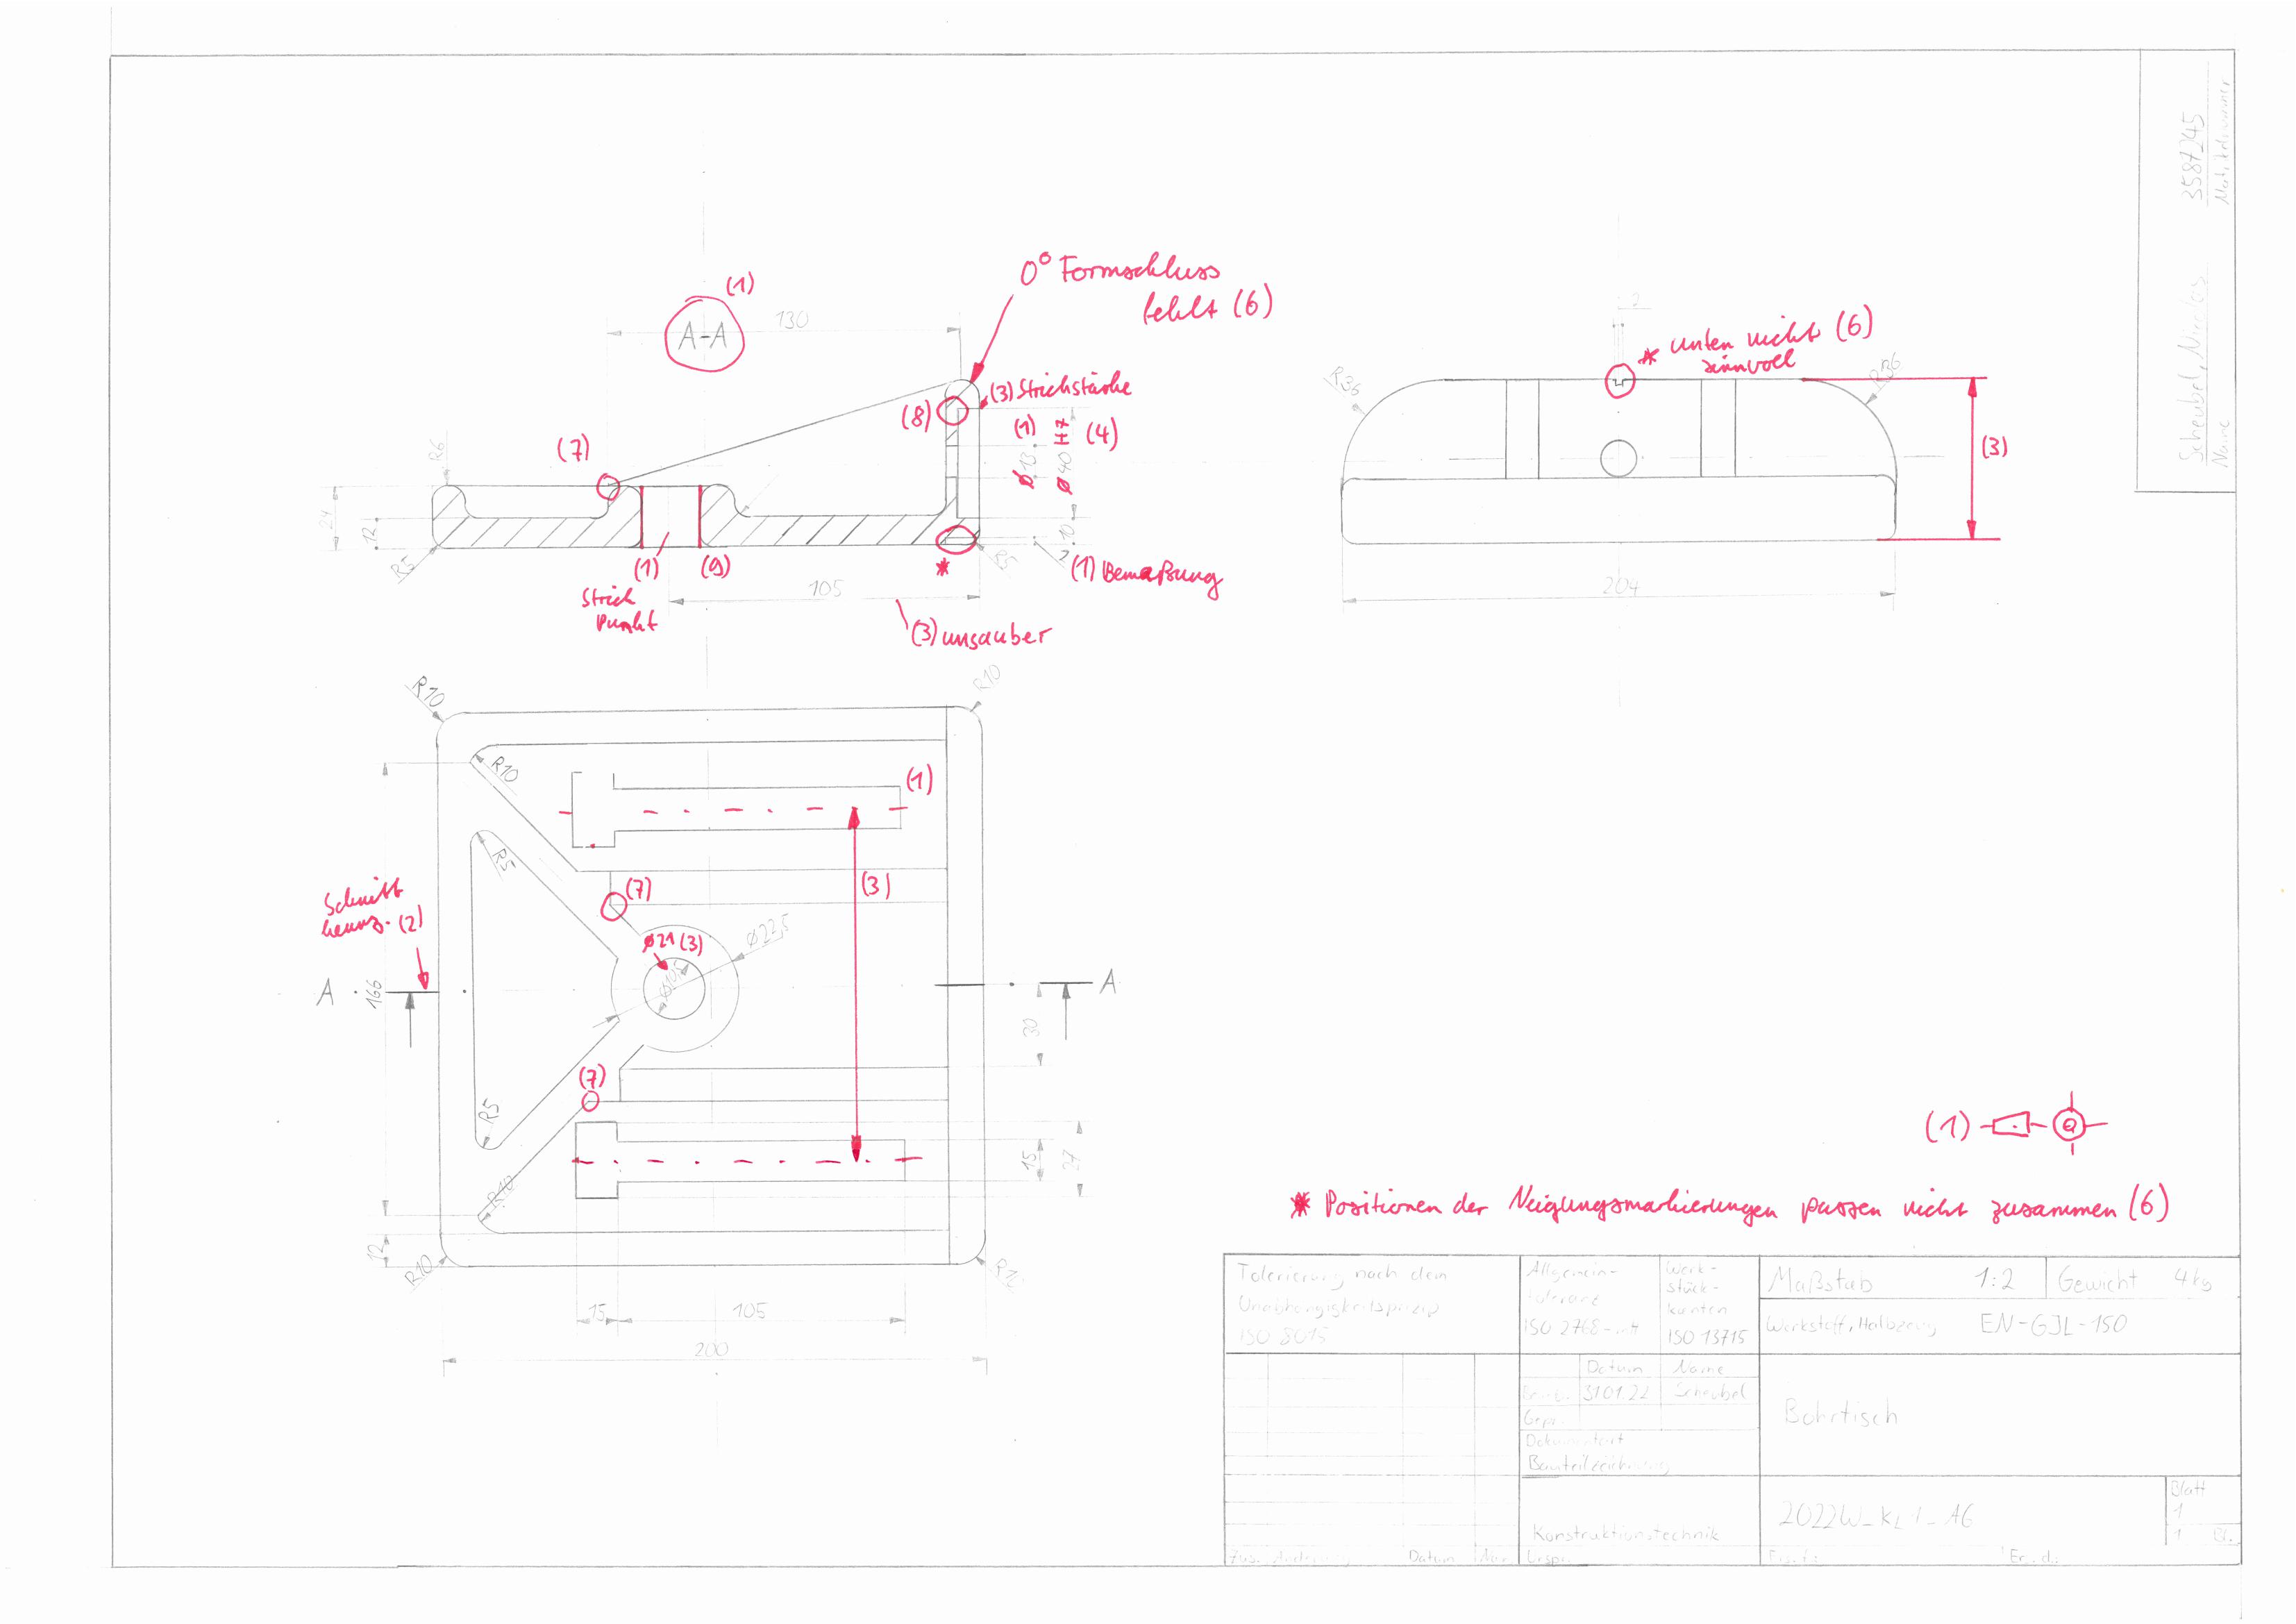 3587245
Matrikelnummer
Scheubel, Nicolas
Name
(1)
A-A
130
0° Formschluss
fehlt (6)
(3) Strichstärke
(8)
(1)
(4)
(7)
⌀ 13
⌀ 40 H7
R6
24
12
R5
(1)
Strich
Punkt
(9)
*
10
R5
2
(1) Bemaßung
105
(3) unsauber
2
* unten nicht (6)
sinnvoll
R36
R36
(3)
204
R10
R10
R10
(1)
R5
(7)
(3)
Schnitt
kennz. (2)
⌀21 (3)
⌀22,5
⌀10,5
A
166
A
30
(7)
R5
15
27
R10
12
R10
R10
15
105
200
(1)
* Positionen der Neigungsmarkierungen passen nicht zusammen (6)
Tolerierung nach dem
Unabhängigkeitsprizip
ISO 8015
Allgemein-
toleranz
ISO 2768-mH
Werk-
stück-
kanten
ISO 13715
Maßstab 1:2
Gewicht 4kg
Werkstoff, Halbzeug EN-GJL-150
Datum Name
Bearb. 31.01.22 Scheubel
Gepr.
Dokumentart
Bauteilzeichnung
Bohrtisch
Konstruktionstechnik
2022W_KL1_A6
Blatt
1
1 Bl.
Zus. Änderung Datum Nam Urspr. Ers.f.: Ers.d.: